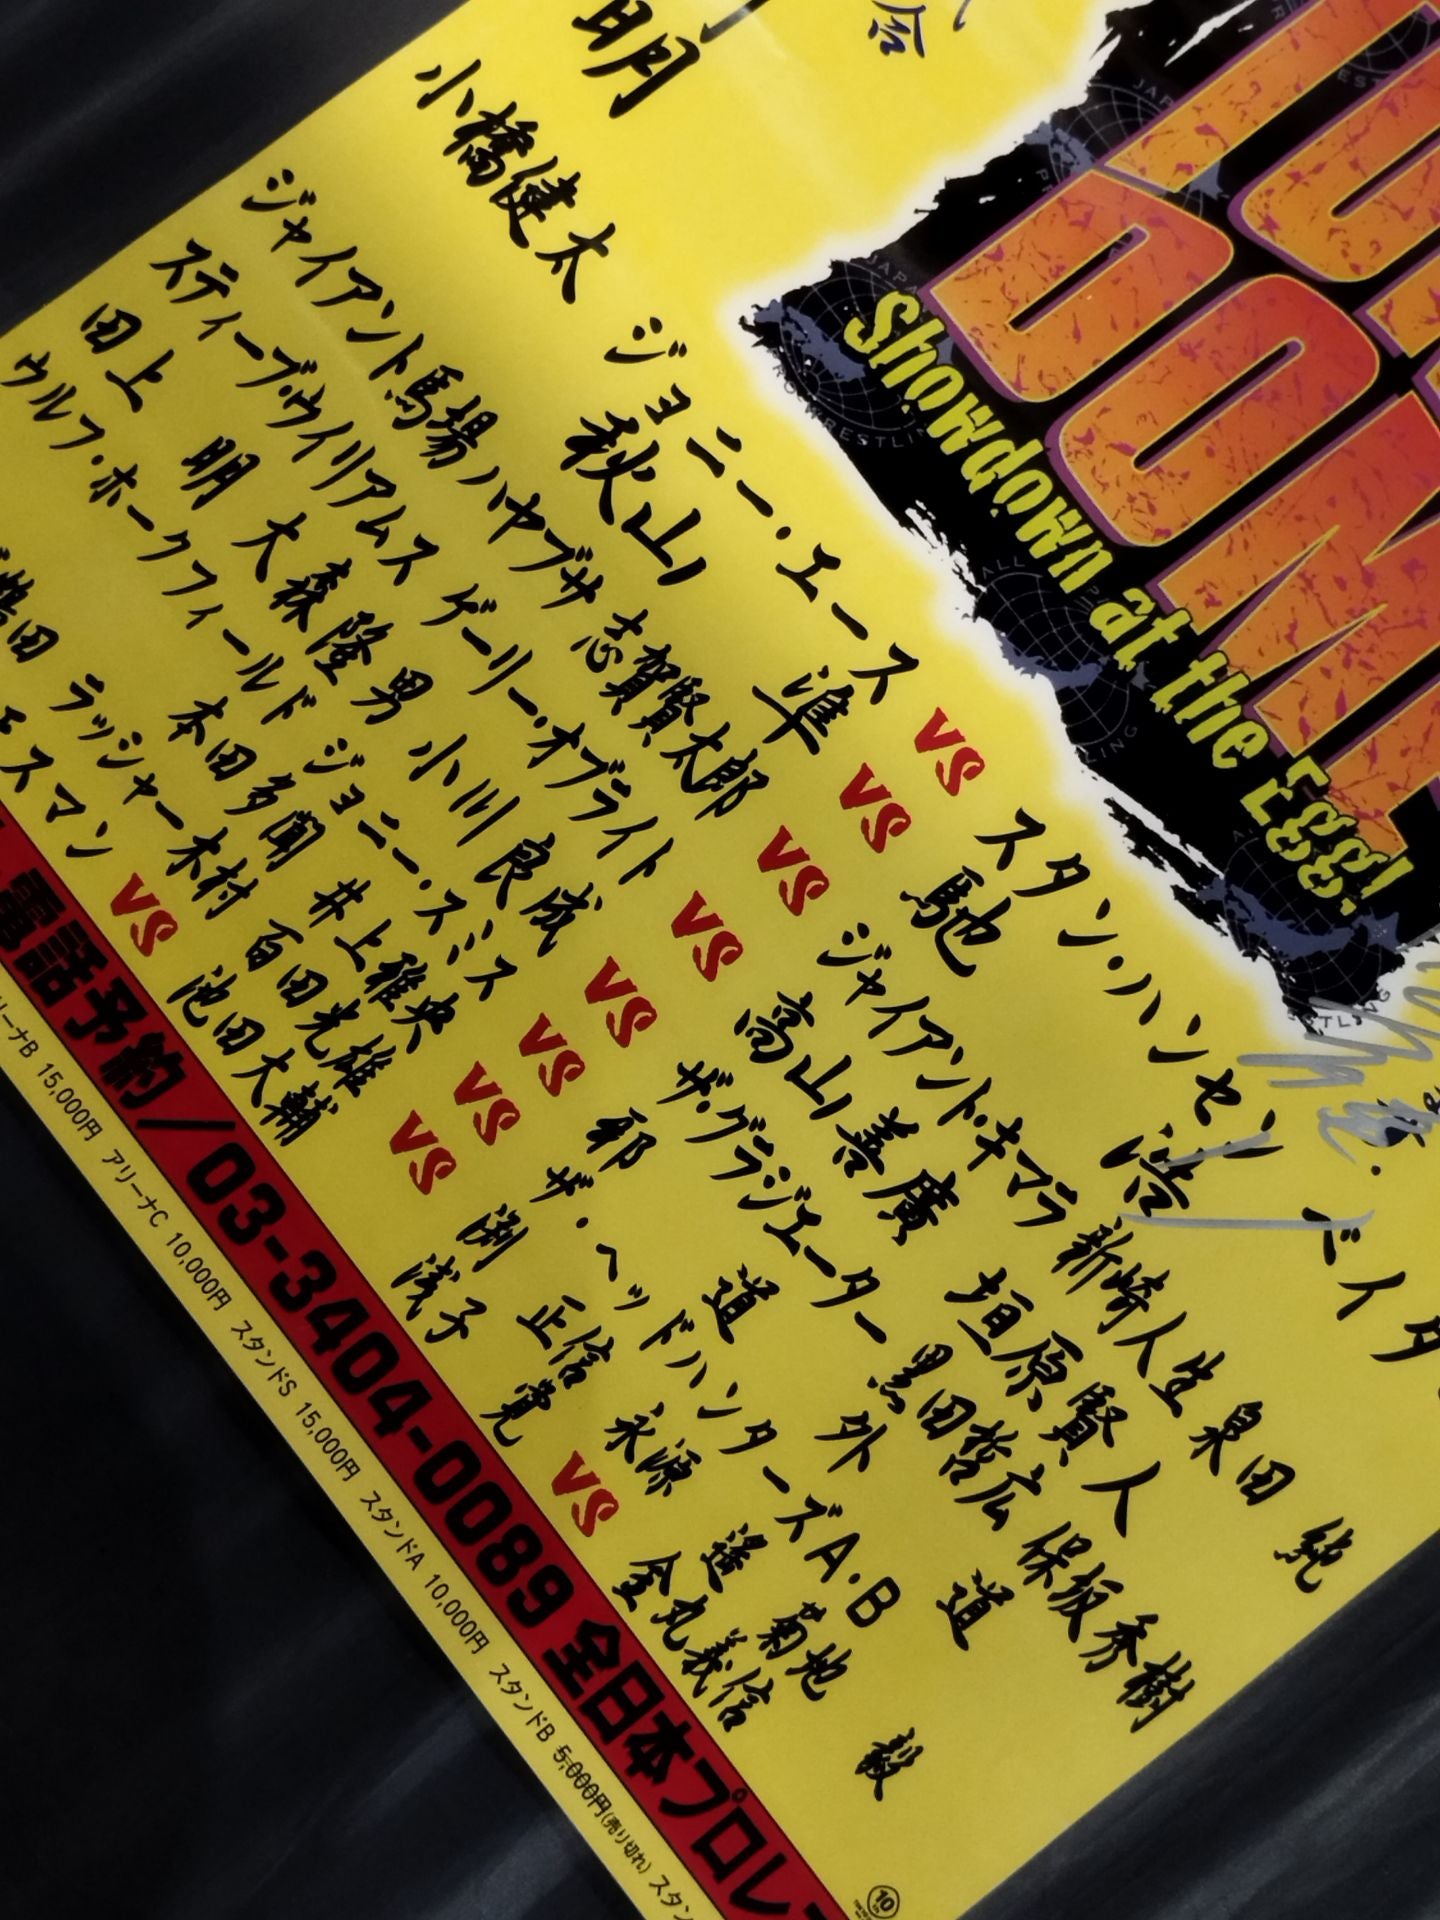 合
明
TOKYO
DOME
Showdown at the Egg!
小橋健太 ジョニー・エース VS スタン・ハンセン ベイダ
秋山 準 VS 馳 浩
ジャイアント馬場 ハヤブサ 志賀賢太郎 VS ジャイアント・キマラ 新崎人生 泉田 純
スティーブ・ウイリアムス ゲーリー・オブライト VS 高山善廣 垣原賢人
田上 明 大森隆男 小川良成 VS ザ・グラジエーター 黒田哲広 保坂秀樹
ウルフ・ホークフィールド ジョニー・スミス VS 邪道 外道
本田多聞 井上雅央 VS ザ・ヘッドハンターズA・B
柴田 ラッシャー木村 百田光雄 VS 渕 正信 永源 遥 菊地 毅
エスマン VS 池田大輔
浅子 覚 VS 金丸義信
電話予約/03-3404-0089 全日本プロレス
リーナB 15,000円 アリーナC 10,000円 スタンドS 15,000円 スタンドA 10,000円 スタンドB 5,000円(売り切れ) スタン